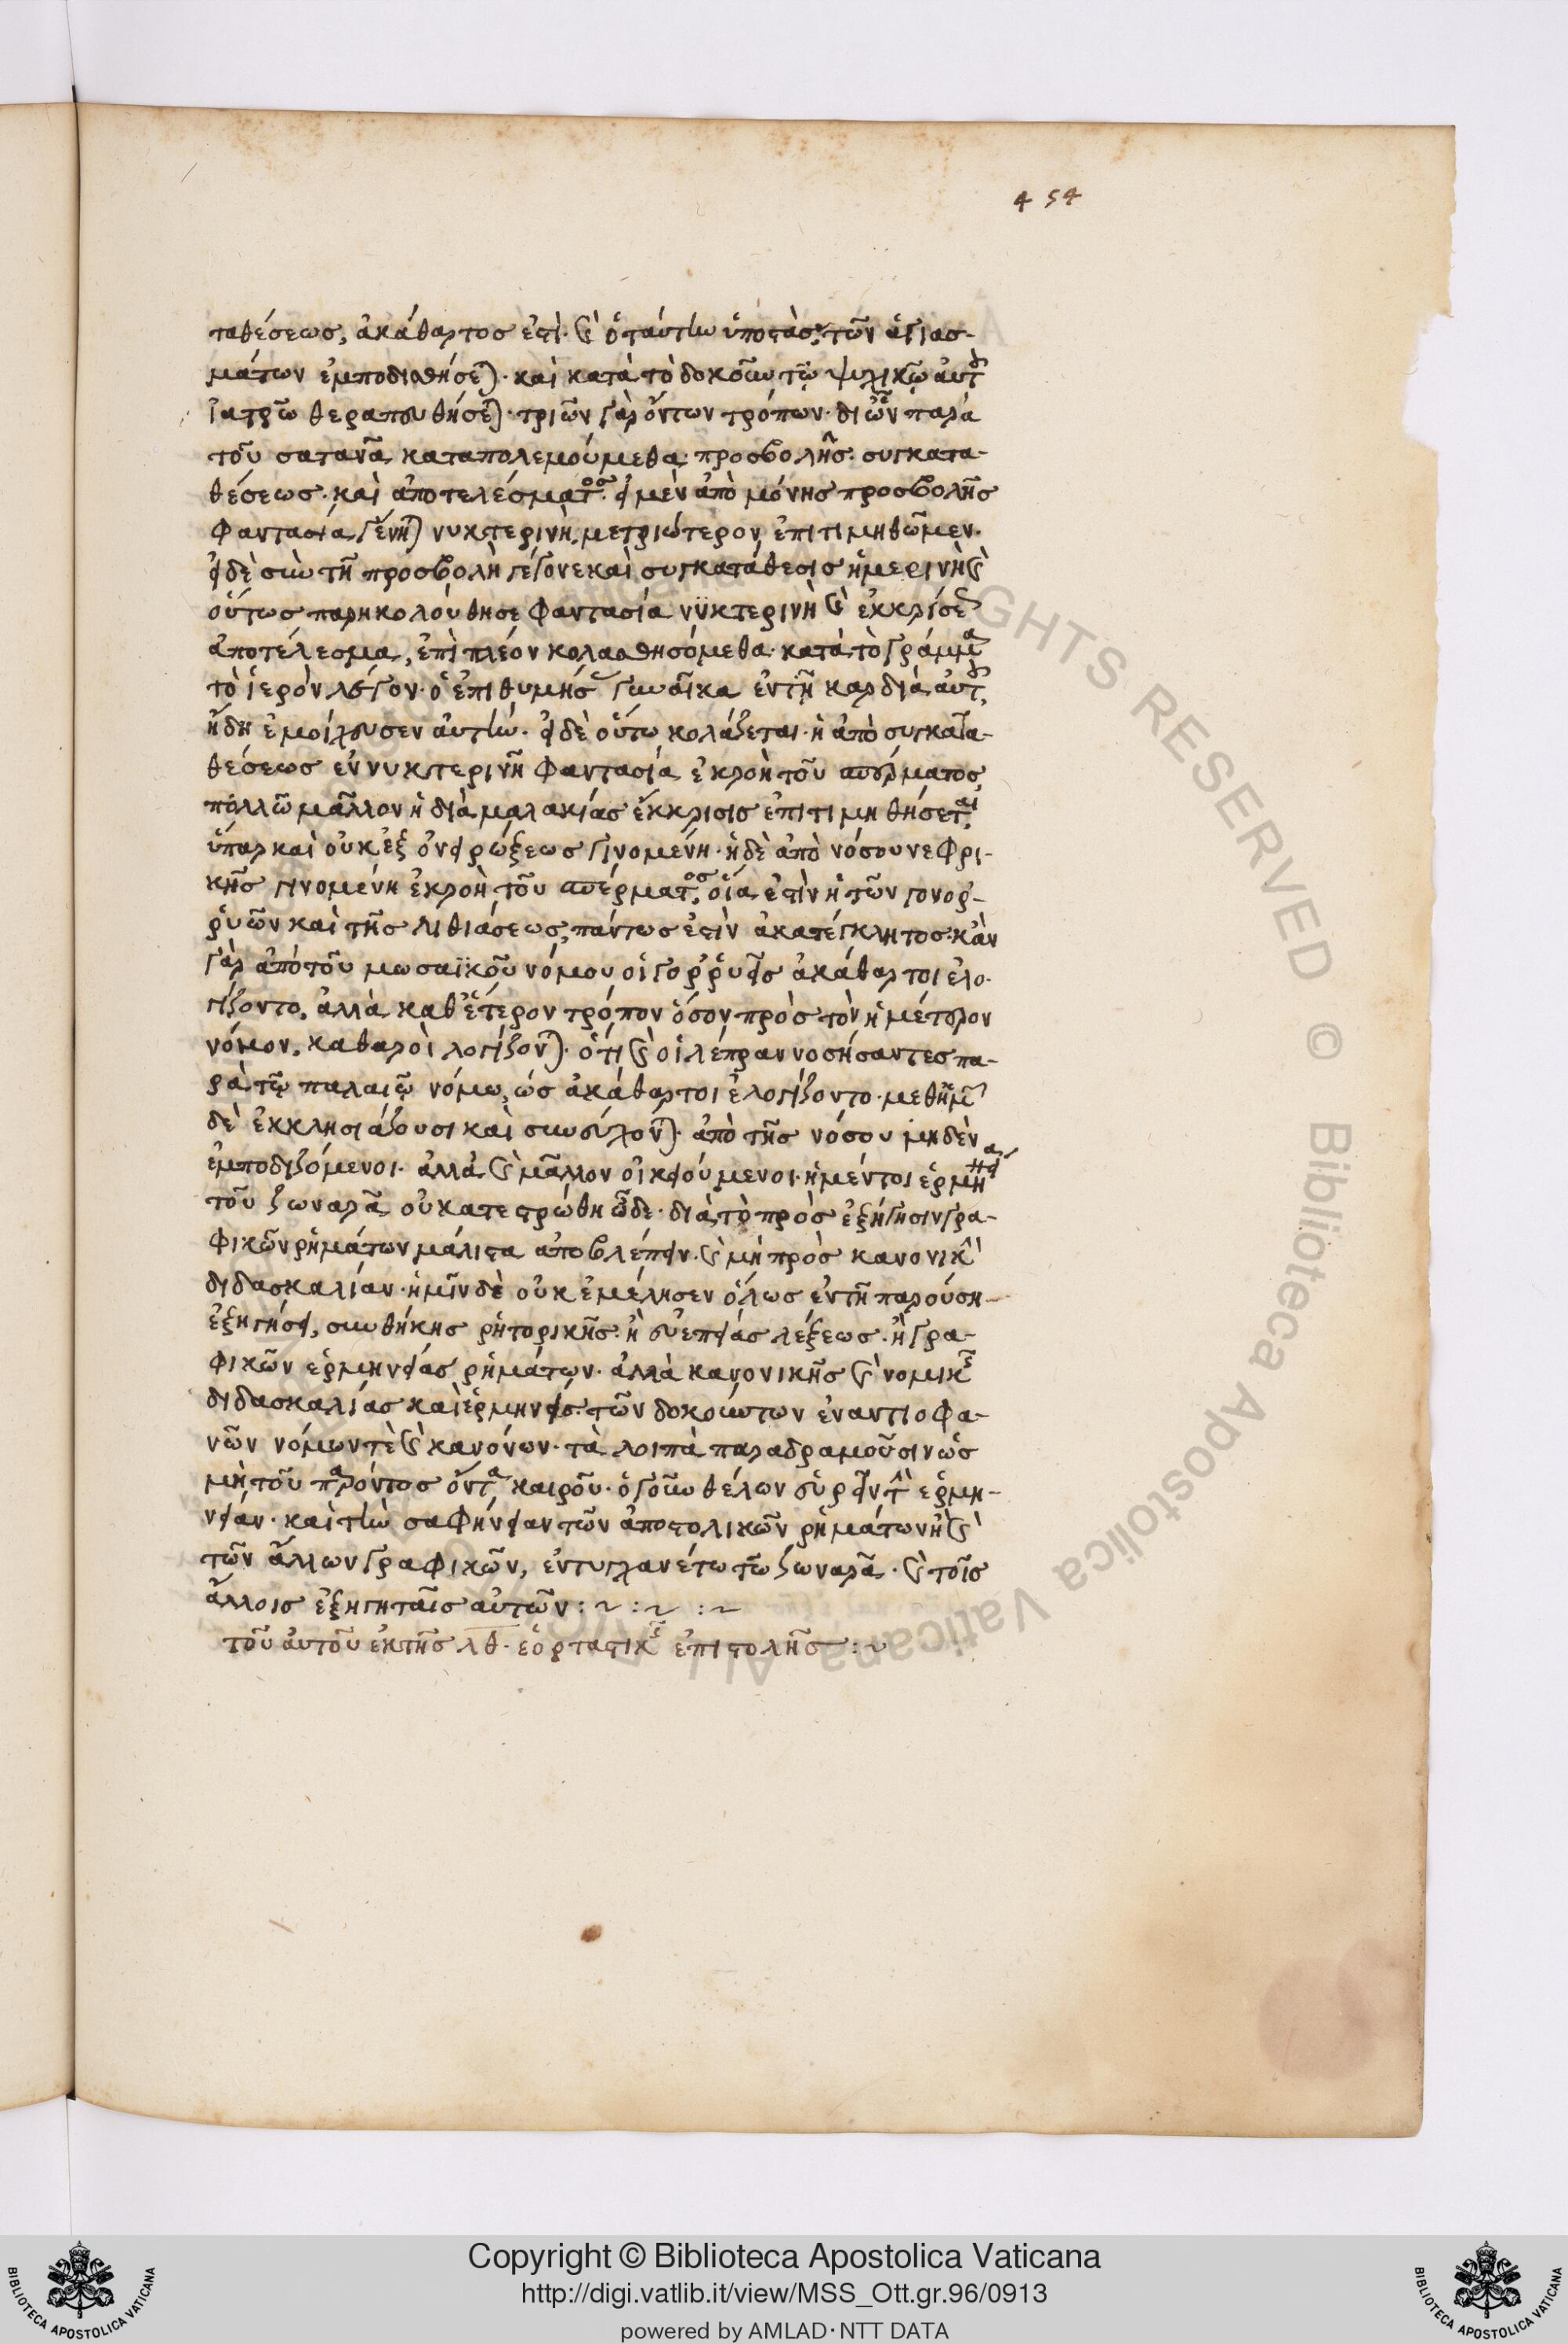 454
ταθέσεως, ἀκάθαρτος ἐστὶ· καὶ ὁ ταύτην ὑποστὰς, τῶν ἁγιασ-
μάτων ἐμποδισθήσεται· καὶ κατὰ τὸ δοκοῦν τῷ ψυχικῷ αὐτοῦ
ἰατρῷ θεραπευθήσεται· τριῶν γὰρ ὄντων τρόπων· δι' ὧν παρὰ
τοῦ σατανᾶ καταπολεμούμεθα· προσβολῆς· συγκατα-
θέσεως· καὶ ἀποτελέσματος· εἰ μὲν ἀπὸ μόνης προσβολῆς
φαντασία γένηται νυκτερινὴ, μετριώτερον ἐπιτιμηθῶμεν·
εἰ δὲ σὺν τῇ προσβολῇ γέγονε καὶ συγκατάθεσις ἡμερινὴ καὶ
οὕτως παρηκολούθησε φαντασία νϋκτερινὴ καὶ ἐκκρίσεως
ἀποτέλεσμα, ἐπὶ πλέον κολασθησόμεθα· κατὰ τὸ γράμμα
τὸ ἱερὸν λέγον· ὁ ἐπιθυμήσας γυναῖκα ἐν τῇ καρδία αὐτοῦ,
ἤδη ἐμοίχευσεν αὐτήν· εἰ δὲ οὕτω κολάζεται· ἡ ἀπὸ συγκατα-
θέσεως ἐν νυκτερινῇ φαντασία ἐκροὴ τοῦ σπέρματος,
πολλῶ μᾶλλον ἡ διὰ μαλακίας ἔκκρισις ἐπιτιμηθήσεται,
ὕπαρ καὶ οὐκ ἐξ ὀνειρώξεως γινομένη· ἡ δὲ ἀπὸ νόσου νεφρι-
κῆς γινομένη ἐκροὴ τοῦ σπέρματος, οἵα ἐστὶν ἡ τῶν γονορ-
ρυῶν καὶ τῆς λιθιάσεως, πάντως ἐστὶν ἀκατέγκλητος· κἂν
γὰρ ἀπὸ τοῦ μωσαϊκοῦ νόμου οἱ γορρυεῖς ἀκάθαρτοι ἐλο-
γίζοντο, ἀλλὰ καθ' ἕτερον τρόπον ὅσον πρὸς τὸν ἡμέτερον
νόμον, καθαροὶ λογίζονται· ὅτι καὶ οἱ λέπραν νοσήσαντες πα-
ρὰ τῷ παλαιῷ νόμω, ὡς ἀκάθαρτοι ἐλογίζοντο· μεθ' ἡμῶν
δὲ ἐκκλησιάζουσι καὶ συνεύχονται· ἀπὸ τῆς νόσου μηδὲν
ἐμποδιζόμενοι· ἀλλὰ καὶ μᾶλλον οἰκειούμενοι· ἡ μέντοι ἑρμηνεία
τοῦ ζωναρᾶ οὐ κατεστρώθη ὧδε· διὰ τὸ πρὸς ἐξήγησιν γρα-
φικῶν ῥημάτων μάλιστα ἀποβλέπειν· καὶ μὴ πρὸς κανονικὴν
διδασκαλίαν· ἡμῖν δὲ οὐκ ἐμέλησεν ὅλως ἐν τῇ παρούση
ἐξηγήσει, συνθήκης ῥητορικῆς· ἢ εὐεπείας λέξεως· ἢ γρα-
φικῶν ἑρμηνείας ῥημάτων· ἀλλὰ κανονικῆς καὶ νομικῆς
διδασκαλίας καὶ ἑρμηνείας τῶν δοκούντων ἐναντιοφα-
νῶν νόμων τὲ καὶ κανόνων· τὰ λοιπὰ παραδραμοῦσιν ὡς
μὴ τοῦ παρόντος ὄντα καιροῦ· ὁ γοῦν θέλων εὑρεῖν τὴν ἑρμη-
νείαν· καὶ τὴν σαφήνειαν τῶν ἀποστολικῶν ῥημάτων ἢ καὶ
τῶν ἄλλων γραφικῶν, ἐντυγχανέτω τῶ ζωναρᾶ· καὶ τοῖς
ἄλλοις ἐξηγηταῖς αὐτῶν :~ :~ :~
τοῦ αὐτοῦ ἐκ τῆς λθ· ἑορταστικῆς ἐπιστολῆς :~
ALL RIGHTS RESERVED © Biblioteca Apostolica Vaticana
Copyright © Biblioteca Apostolica Vaticana
http://digi.vatlib.it/view/MSS_Ott.gr.96/0913
powered by AMLAD·NTT DATA
BIBLIOTECA APOSTOLICA VATICANA
BIBLIOTECA APOSTOLICA VATICANA